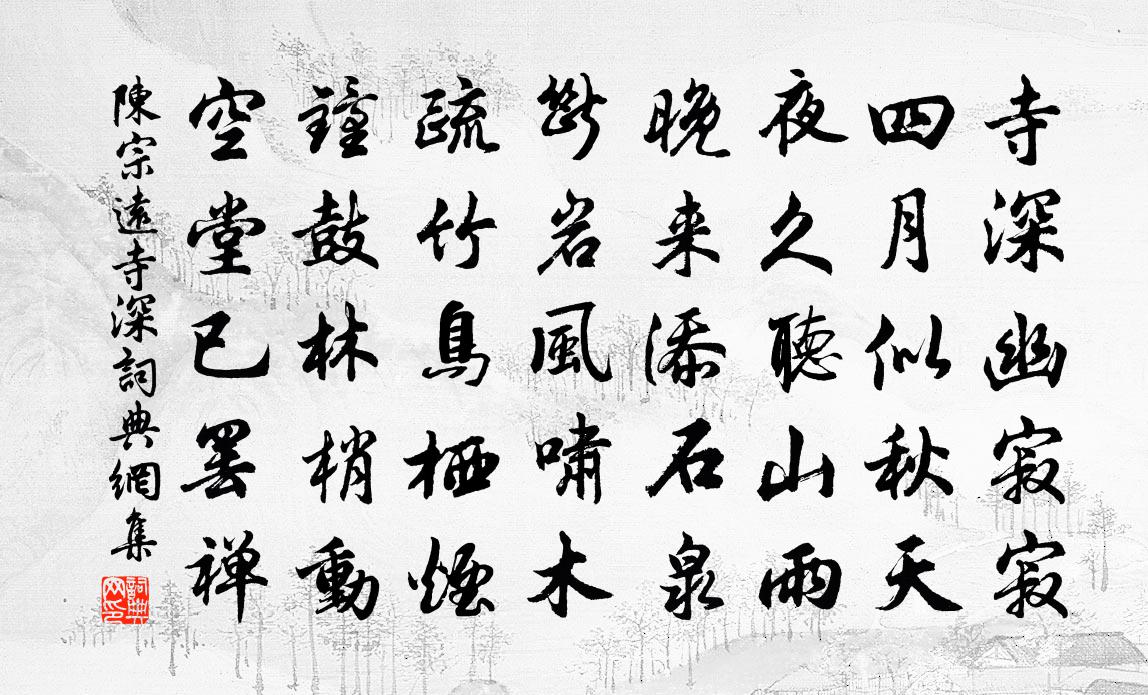 寺深幽寂寂
四月似秋天
夜久聽山雨
晚来添石泉
斷岩風嘯木
疏竹鳥栖煙
鐘鼓林梢動
空堂已罢禅
陳宗遠寺深詞典網集
詞典网印